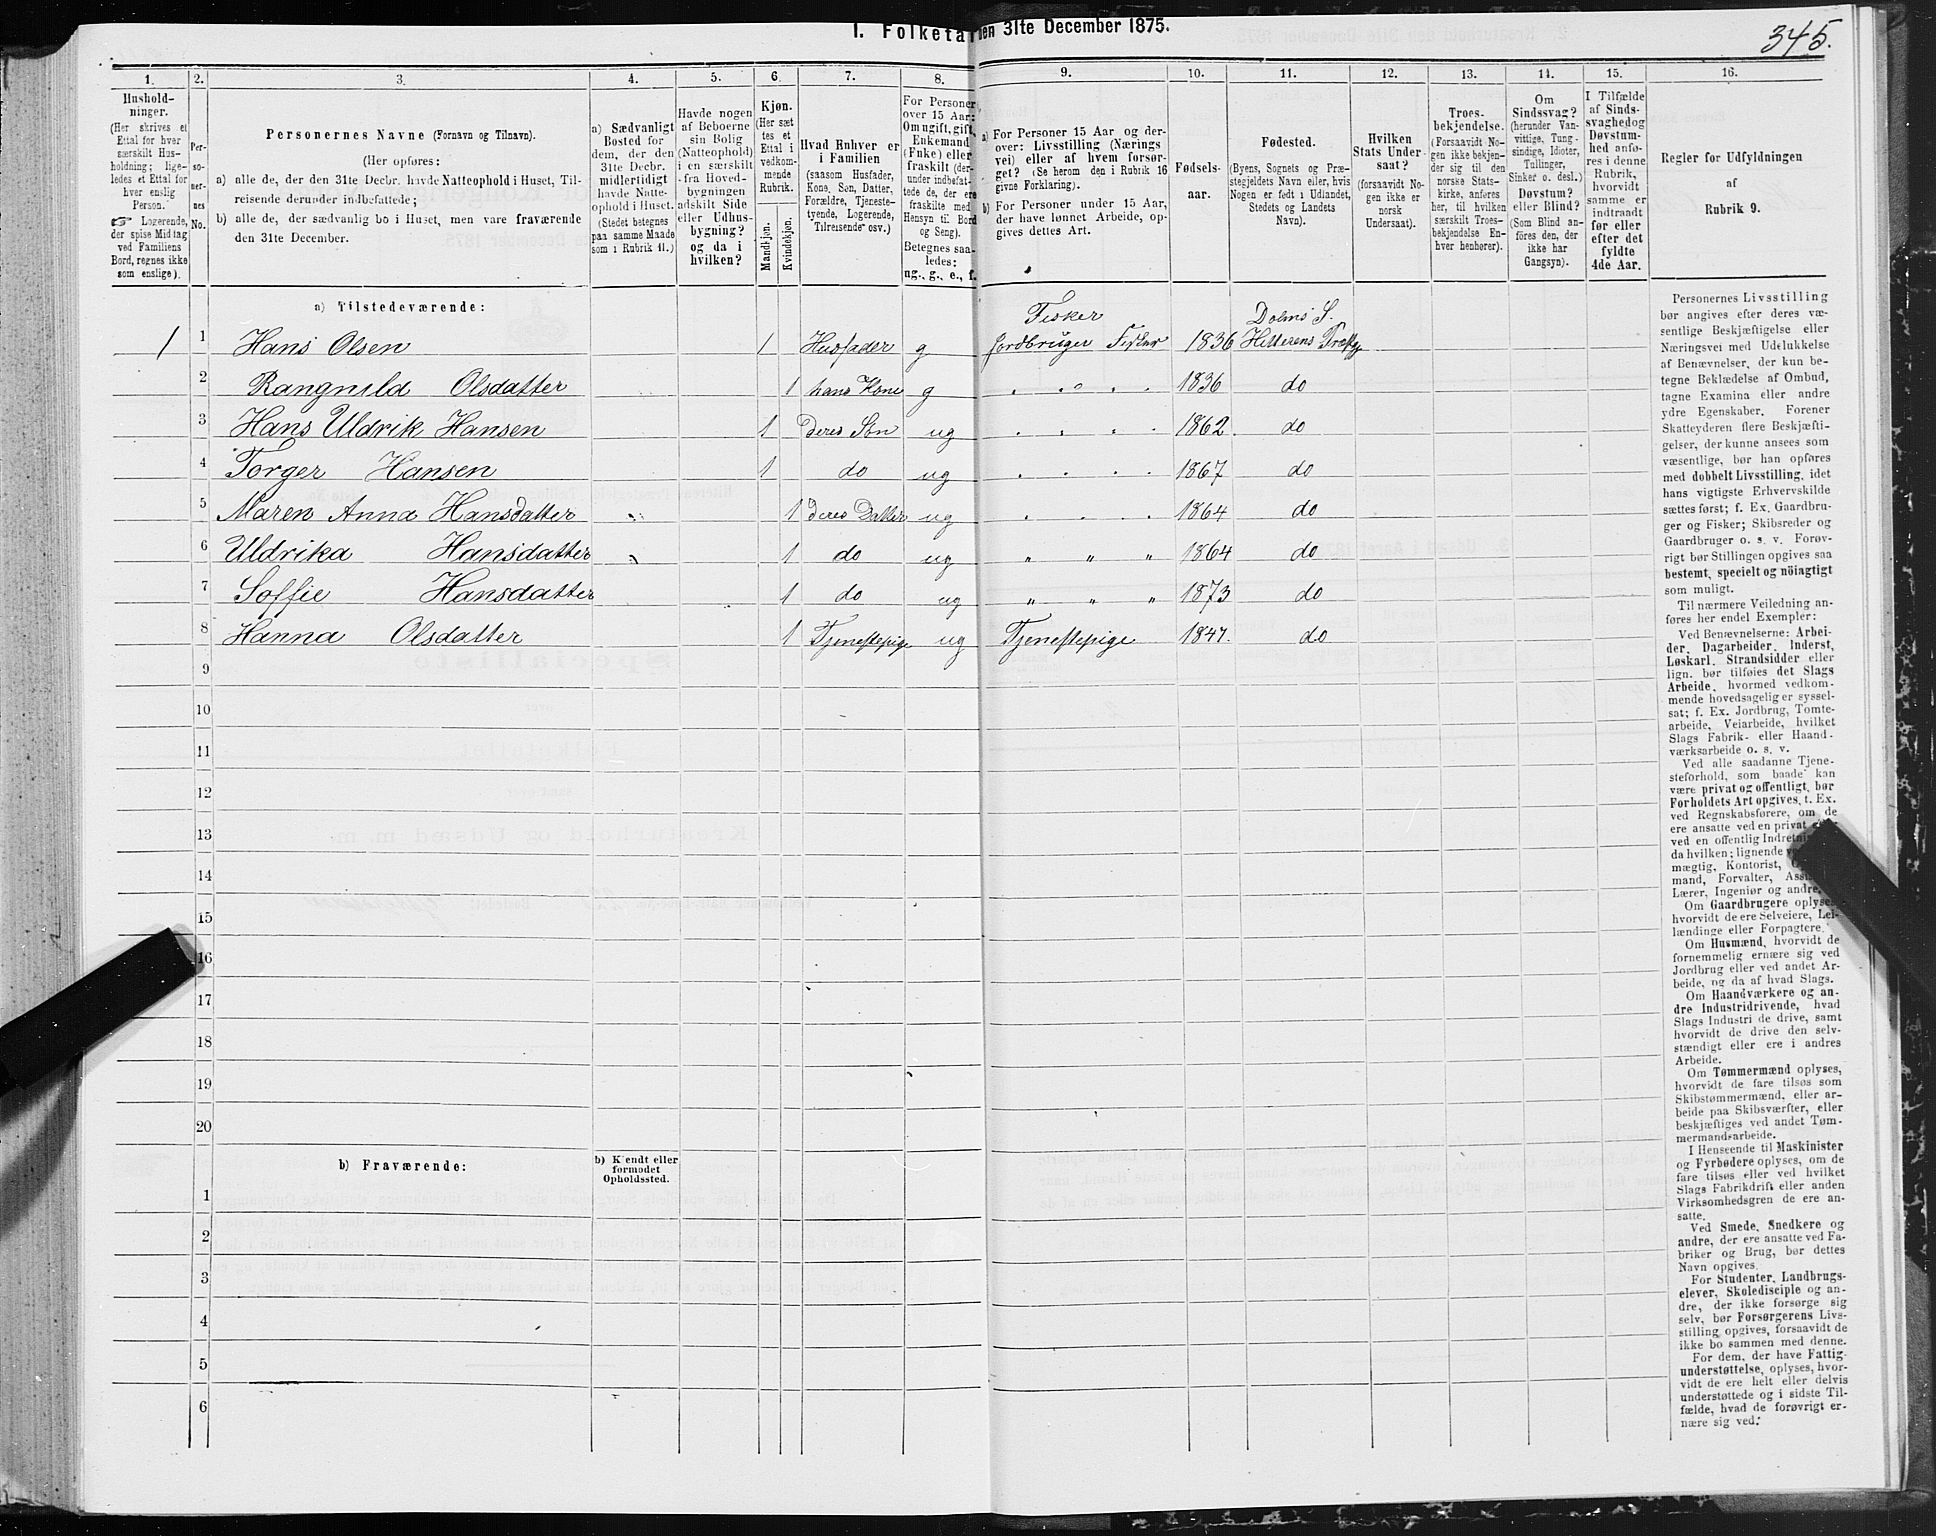 1. Folketal den 31te December 1875.
345.
1. 2. 3. 4. 5. 6. 7. 8. 9. 10. 11. 12. 13. 14. 15. 16.
Hushold-
ninger.
(Her skrives et
Ettal for hver
særskilt Hus-
holdning; lige-
ledes et Ettal for
hver enslig
Person.)
☞ Logerende,
der spise Middag
ved Familiens
Bord, regnes ikke
som enslige).
Per-
so-
ner-
nes
No.
Personernes Navne (Fornavn og Tilnavn).
(Her opføres:
a) alle de, der den 31te Decbr. havde Natteophold i Huset, Til-
reisende derunder indbefattede;
b) alle de, der sædvanlig bo i Huset, men vare fraværende
den 31te December.
a) Sædvanligt
Bosted for
dem, der den
31te Decbr.
midlertidigt
havde Natte-
ophold i Huset.
(Stedet betegnes
paa samme Maade
som i Rubrik 11.)
Havde nogen
af Beboerne
sin Bolig
(Natteophold)
i en særskilt
fra Hoved-
bygningen
adskilt Side
eller Udhus-
bygning?
og da i
hvilken?
Kjøn.
(Her sæt
tes et
Ettal i
vedkom-
mende
Rubrik.
Mandkjøn.
Kvindekjøn.
Hvad Enhver er
i Familien
(saasom Husfader,
Kone, Søn, Datter,
Forældre, Tjeneste-
tyende, Logerende,
Tilreisende osv.)
For Personer
over 15 Aar:
Om ugift, gift,
Enkemand
(Enke) eller
fraskilt (der-
under indbefat-
tede de, der ere
fraskilte med
Hensyn til Bord
og Seng).
Betegnes saa-
ledes:
ug., g., e., f.
a) For Personer 15 Aar og der-
over: Livsstilling (Nærings
vei) eller af hvem forsør-
get? (Se herom den i Rubrik 16
givne Forklaring).
b) For Personer under 15 Aar,
der have lønnet Arbeide, op-
gives dettes Art.
Fødsels-
aar.
Fødested.
(Byens, Sognets og Præ-
stegjeldets Navn eller, hvis
Nogen er født i Udlandet,
Stedets og Landets
Navn).
Hvilken
Stats Under
saat?
(forsaavidt No-
gen ikke er
norsk
Undersaat).
Troes-
bekjendelse.
(Forsaavidt No-
gen ikke bekjen-
der sig til den
norske Stats-
kirke, anføres
her, til hvilken
særskilt Troes-
bekjendelse En-
hver henhører).
Om
Sindssvag?
(herunder Van-
vittige, Tung-
sindige, Idioter,
Tullinger,
Sinker o. desl.)
Døvstum?
eller Blind?
(Som Blind an-
føres den, der
ikke har
Gangsyn).
I Tilfælde
af Sinds-
svaghed og
Døvstum-
hed anfø-
res i denne
Rubrik,
hvorvidt
samme er
indtraadt
før eller
efter det
fyldte
4de Aar.
Regler for Udfyldningen
af
Rubrik 9.
a) Tilstedeværende:
Fisker Dolms S.
1 1 Hans Olsen 1 Husfader g Jordbruger Fisker 1836 Hitterens Præstg
2 Rangnild Olsdatter 1 hans Kone g 1836 do
3 Hans Uldrik Hansen 1 Deres Søn ug 1862 do
4 Torger Hansen 1 do ug 1867 do
5 Maren Anna Hansdatter 1 Deres Datter ug 1864 do
6 Uldrika Hansdatter 1 do ug " " " 1864 do
7 Soffie Hansdatter 1 do ug " " " 1873 do
8 Hanna Olsdatter 1 Tjenestepige ug Tjenestepige 1847. do
9
10
11
12
13
14
15
16
17
18
19
20
b) Fraværende: b) Kjendt eller
formodet
Opholdssted.
1
2
3
4
5
6
Personernes Livsstilling
bør angives efter deres væ-
sentlige Beskjæftigelse eller
Næringsvei med Udelukkelse
af Benævnelser, der kun be-
tegne Beklædelse af Ombud,
tagne Examina eller andre
ydre Egenskaber. Forener
Skatteyderen flere Beskjæfti-
gelser, der kunne ansees som
væsentlige, bør han opføres
med dobbelt Livsstilling, idet
hans vigtigste Erhvervskilde
sættes først; f. Ex. Gaardbru-
ger og Fisker; Skibsreder og
Gaardbruger o. s. v. Forøv-
rigt bør Stillingen opgives saa
bestemt, specielt og nöiagtigt
som muligt.
Til nærmere Veiledning an-
føres her endel Exempler:
Ved Benævnelserne: Arbei-
der, Dagarbeider, Inderst,
Løskarl, Strandsidder eller
lign. bør tilføies det Slags
Arbeide, hvormed vedkom-
mende hovedsagelig er syssel-
sat; f. Ex. Jordbrug, Tomte-
arbeide, Veiarbeide, hvilket
Slags Fabrik- eller Haand-
værksarbeide o. s. v.
Ved alle saadanne Tjene-
steforhold, som baade kan
være privat og offentligt, bør
Forholdets Art opgives, t. Ex.
ved Regnskabsførere, om de
ere ansatte ved en privat
ved en offentlig
da hvilken; lignende
mægtig, Kontorist,
mand, Forvalter,
Lærer, Ingeniør og andre.
Om Gaardbrugere oplyses,
hvorvidt de ere Selveiere, Lei-
lændinge eller Forpagtere.
Om Husmænd, hvorvidt de
fornemmelig ernære sig ved
Jordbrug eller ved andet Ar-
beide, og da af hvad Slags.
Om Haandværkere og an-
dre Industridrivende, hvad
Slags Industri de drive, samt
hvorvidt de drive den selv-
stændigt eller ere i andres
Arbeide.
Om Tømmermænd oplyses,
hvorvidt de fare tilsøs som
Skibstømmermænd, eller ar-
beide paa Skibsværfter, eller
beskjæftiges ved andet Tøm-
mermandsarbeide.
I Henseende til Maskinister
og Fyrbødere oplyses, om de
fare tilsøs eller ved hvilket
Slags Fabrikdrift eller anden
Virksomhedsgren de ere an-
satte.
Ved Smede, Snedkere og
andre, der ere ansatte ved Fa-
briker og Brug, bør dettes
Navn opgives.
For Studenter, Landbrugs-
elever, Skoledisciple og an-
dre, der ikke forsørge sig
selv, bør Forsørgerens Livs-
stilling opgives, forsaavidt de
ikke bo sammen med denne.
For dem, der have Fattig-
understøttelse, oplyses, hvor-
vidt de ere helt eller delvis
understøttede og i sidste Til-
fælde, hvad de forøvrigt er-
nære sig ved.